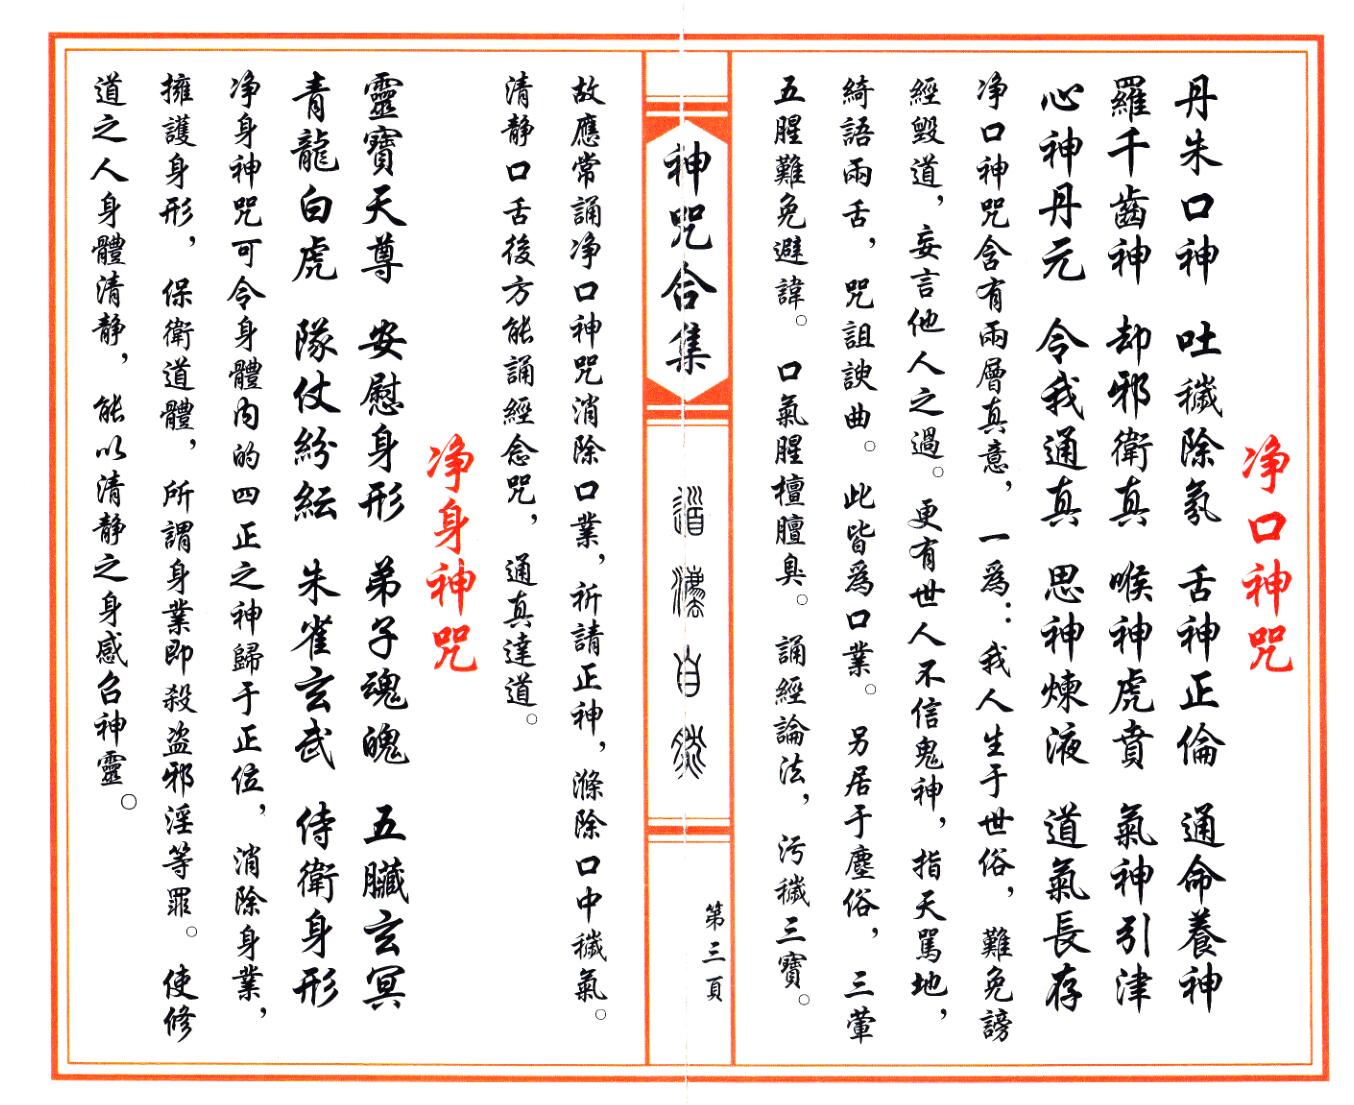 净口神咒
丹朱口神　吐穢除氛　舌神正倫　通命養神
羅千齒神　却邪衛真　喉神虎賁　氣神引津
心神丹元　令我通真　思神煉液　道氣長存
净口神咒含有兩層真意，一爲：我人生于世俗，難免謗
經毀道，妄言他人之過。更有世人不信鬼神，指天駡地，
綺語兩舌，咒詛諛曲。此皆爲口業。另居于塵俗，三葷
五腥難免避諱。口氣腥檀膻臭。誦經論法，污穢三寶。
神咒合集
道法自然
第三頁
故應常誦净口神咒消除口業，祈請正神，滌除口中穢氣。
清静口舌後方能誦經念咒，通真達道。
净身神咒
靈寶天尊　安慰身形　弟子魂魄　五臟玄冥
青龍白虎　隊仗紛紜　朱雀玄武　侍衛身形
净身神咒可令身體内的四正之神歸于正位，消除身業，
擁護身形，保衛道體，所謂身業即殺盗邪淫等罪。使修
道之人身體清静，能以清静之身感召神靈。